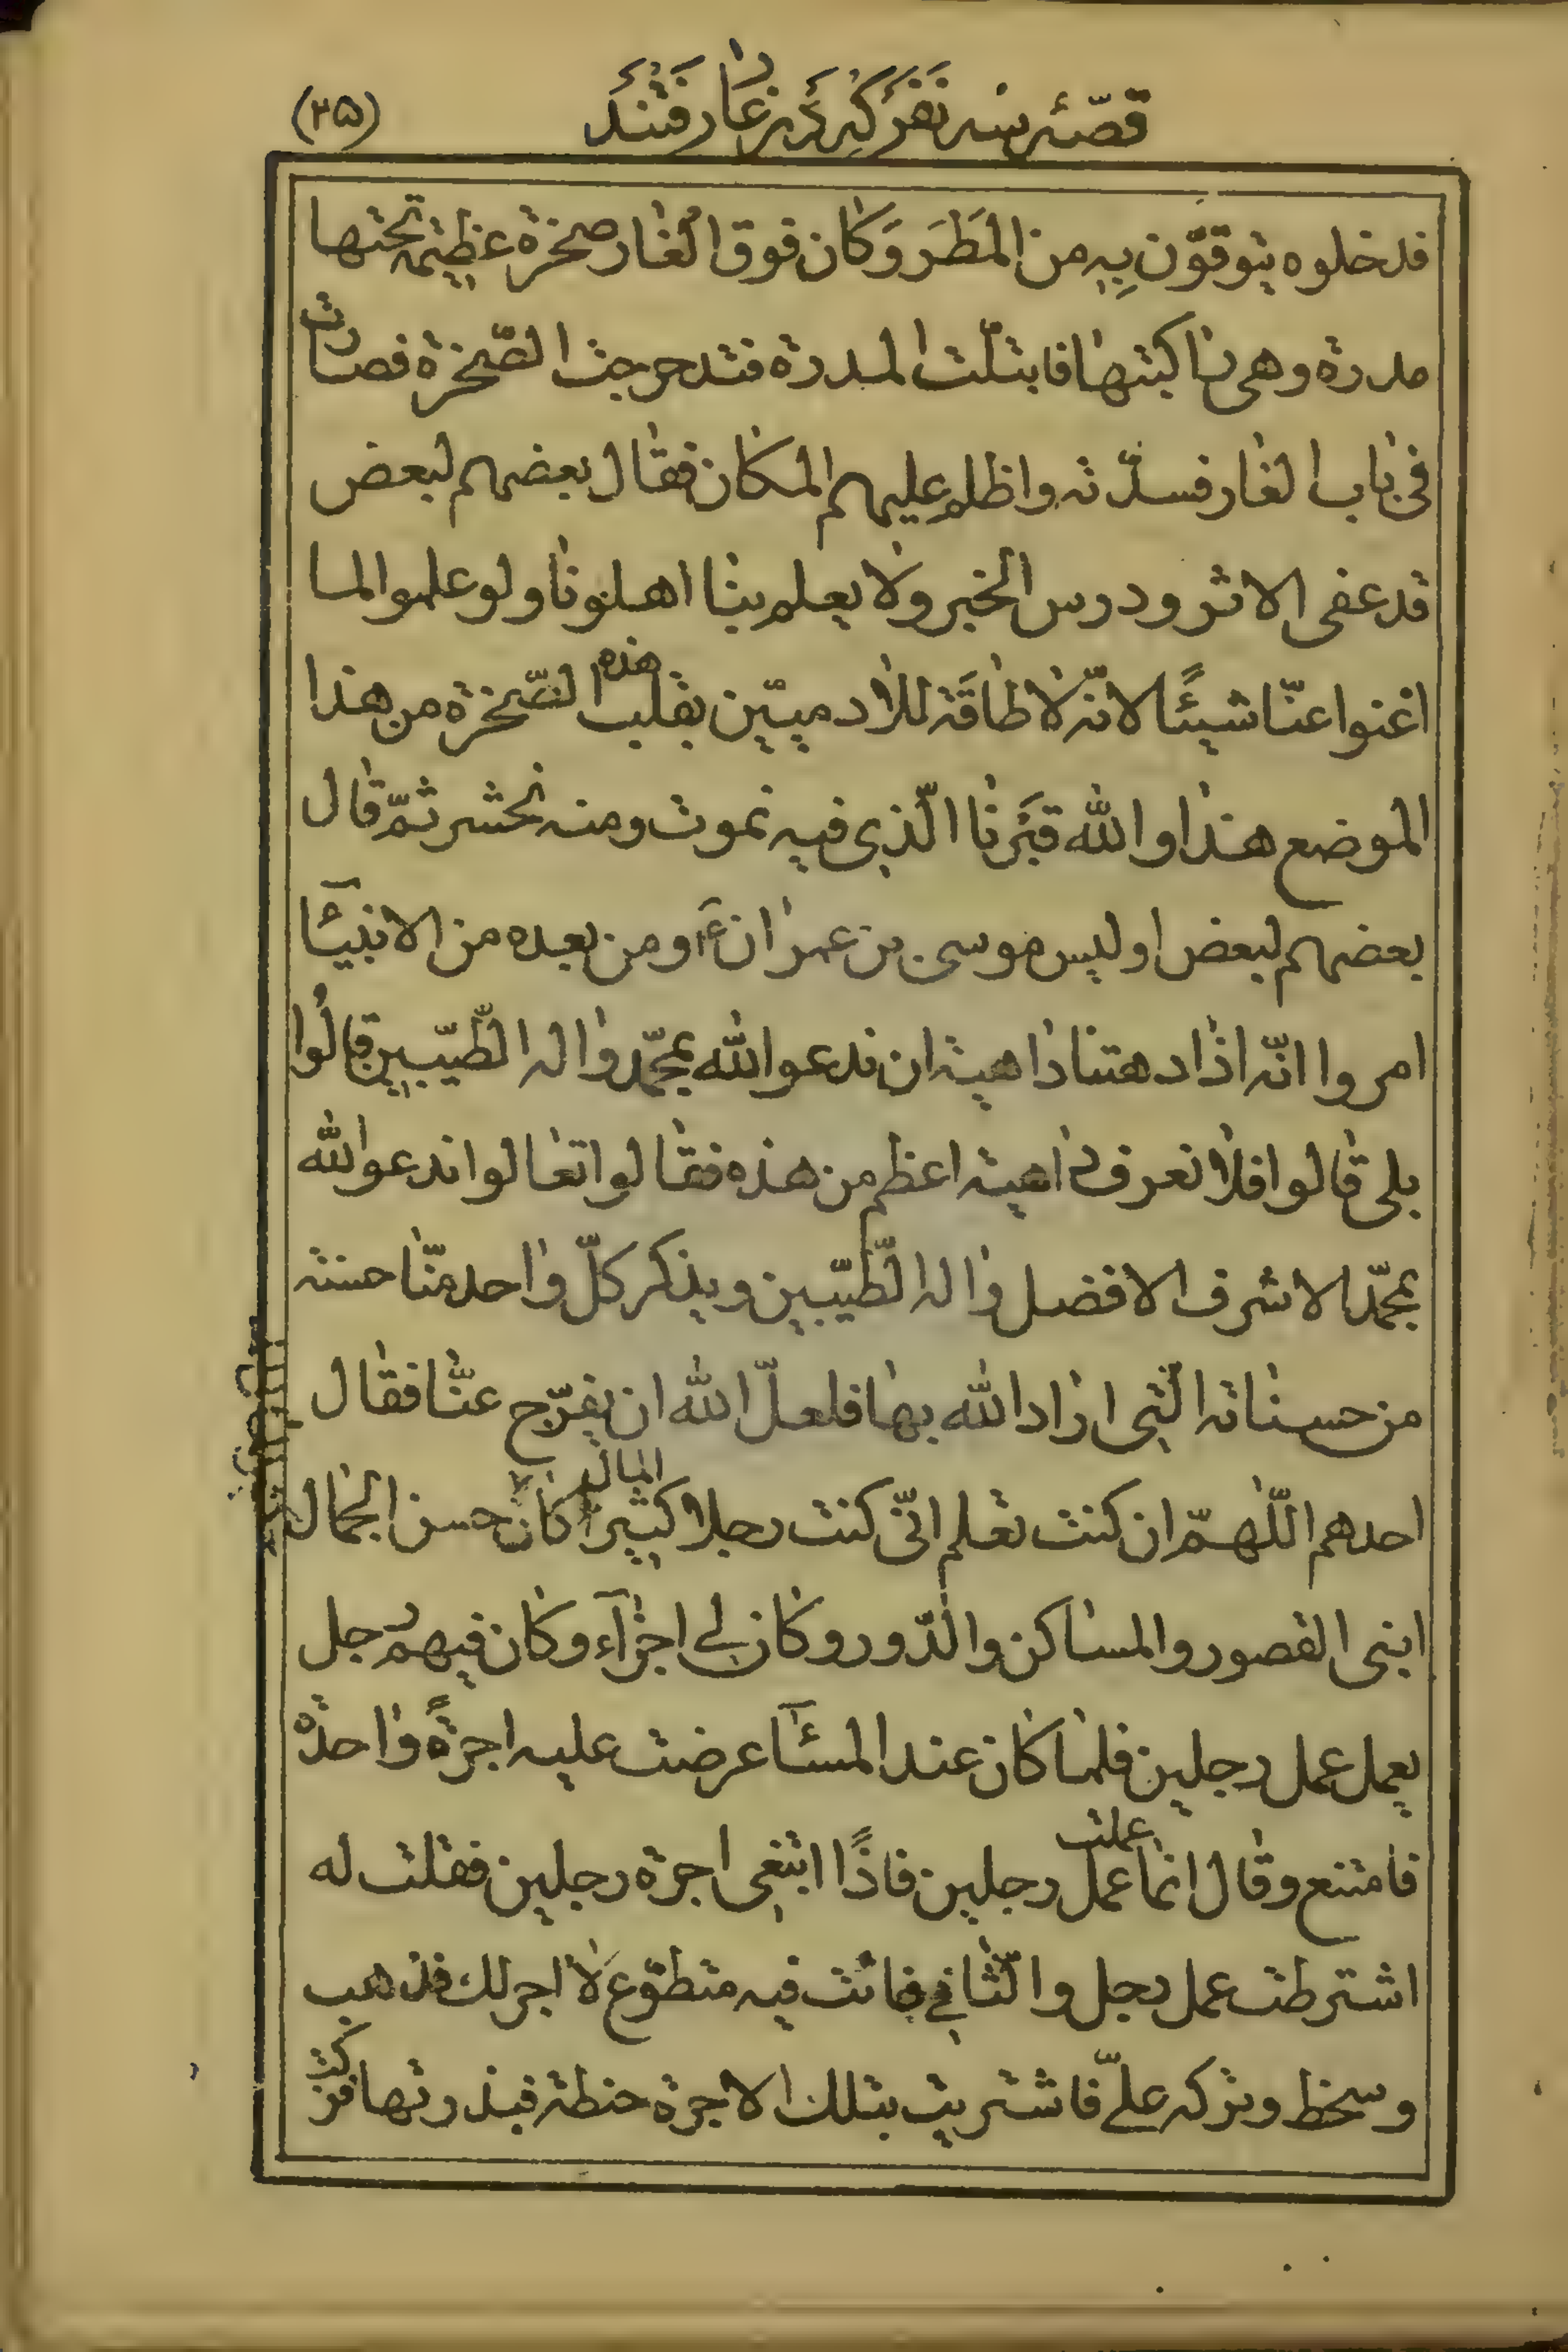 قصّۀ سه نَفَرْ كِه دَرْ غار رَفْتَنْدَ
(۳۵)
فدخلوه يتوقّون بِهِ من المَطَرَ وَكان فوق الغار صخرة عظيمة تحتها
مدرة وهى راكبتها فابتلّت المدرة فتدحرجت الصّخرة فصارت
فى باب الغار فسدّته واظلم عليهم المكان فقال بعضهم لبعض
قد عفى الاثر ودرس الخبر ولا يعلم بنا اهلونا ولو علموا لما
اغنوا عنّا شيئًا لانّه لا طاقَة للادميّين بقلب هذه الصّخرة من هذا
الموضع هذا والله قَبَرنا الّذى فيه نموت ومنه نحشر ثمّ قال
بعضهم لبعض اوليس موسى بن عمران ع ومن بعده من الانبيآ
امروا انّه اذا دهتنا داهية ان ندعو الله بمحمّد واله الطّيّبين قالُوا
بلى قالوا فلا نعرف داهية اعظم من هذه فقالوا تعالوا ندعو الله
بمحمّد الاشرف الافضل واله الطّيّبين ويذكر كلّ واحد منّا حسنة
من حسناته الّتى اراد الله بها فلعلّ الله ان يفرّج عنّا فقال
احدهم اللّهمّ ان كنت تعلم انّى كنت رجلا كثير المال كان حسن الحال
ابنى القصور والمساكن والدّور وكان لى اجرآء وكان فيهم رجل
يعمل عمل رجلين فلما كان عند المسآ عرضت عليه اجرةً واحدة
فامتنع وقال انما عملت عمل رجلين فاذًا ابتغى اجرة رجلين فقلت له
اشترطت عمل رجل والثّانى فانت فيه متطوّع لا اجر لك فذهب
وسخط وتركه علىّ فاشتريت بتلك الاجرة حنطة فبذرتها فزكت